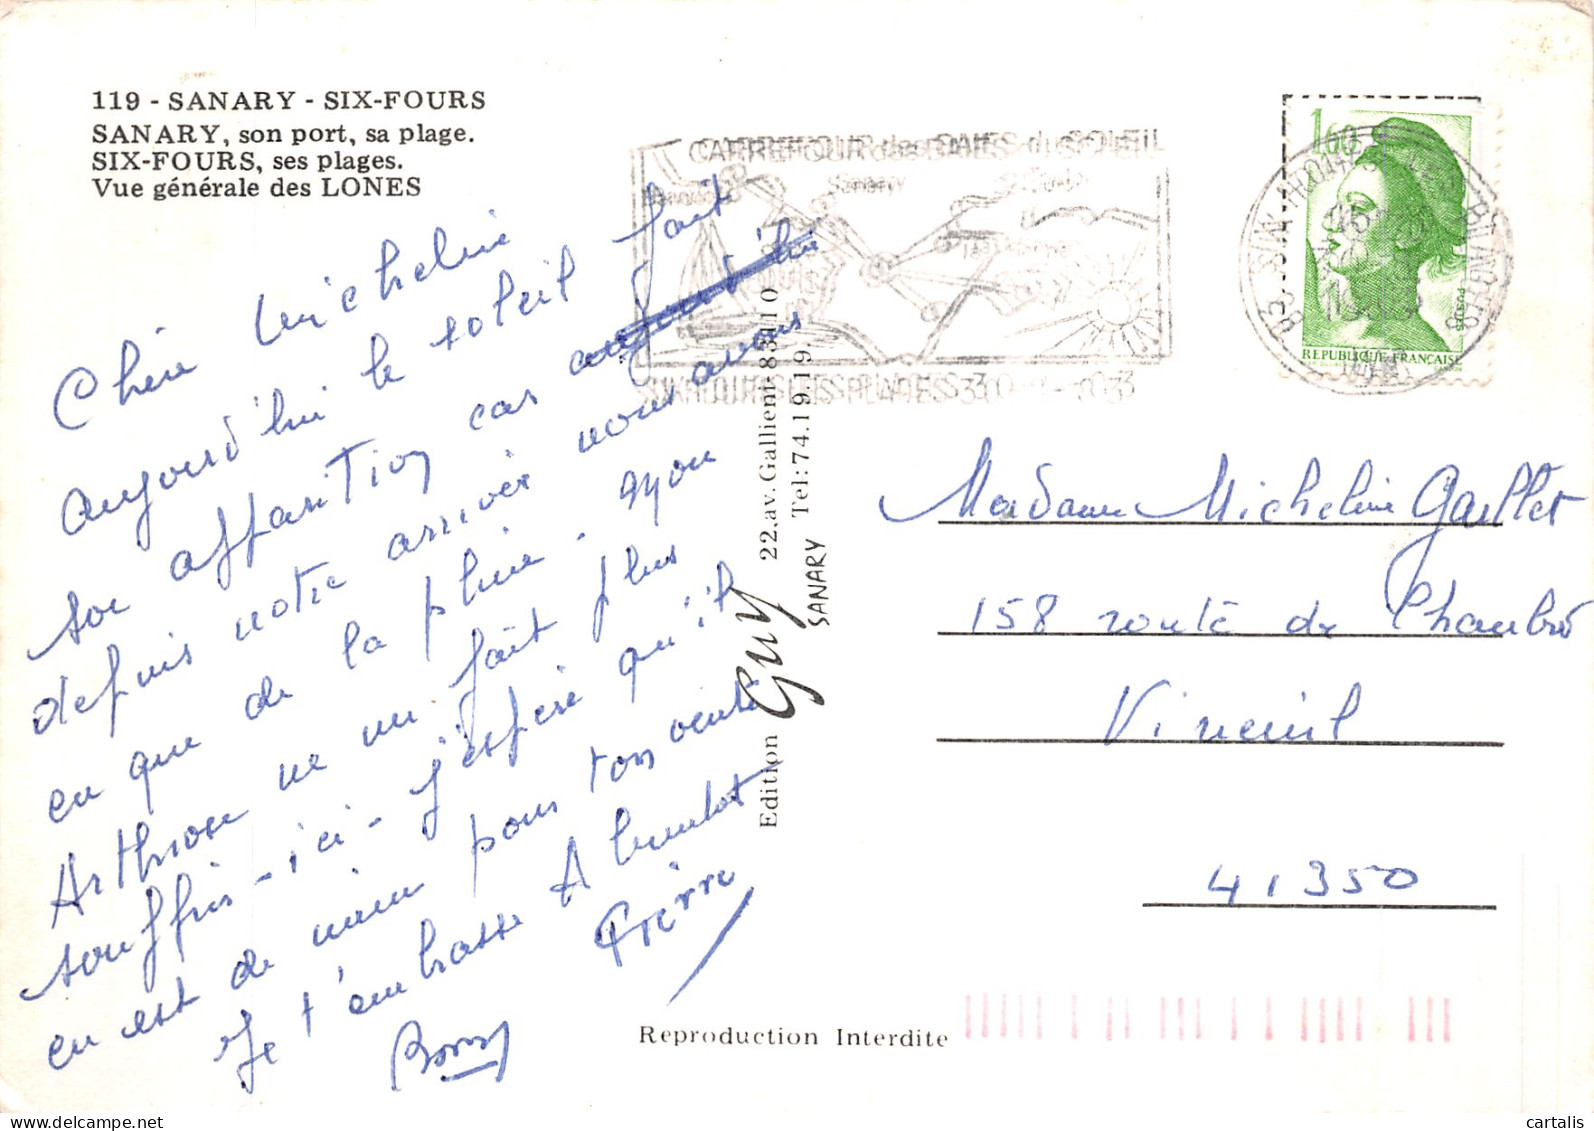 119 - SANARY - SIX-FOURS
SANARY, son port, sa plage.
SIX-FOURS, ses plages.
Vue générale des LONES
Chère Micheline
aujourd'hui le soleil fait
son apparition car aujourd'hui
depuis notre arrivée nous avons
eu que de la pluie. mon
Arthrose ne me fait plus
souffrir - ici - j'espère qu'il
en est de même pour ton ventre
Je t'embrasse A bientot
Pierre
CARREFOUR des BAIES du SOLEIL
Sanary
SIX-FOURS LES PLAGES
1,60
POSTES
REPUBLIQUE FRANÇAISE
Edition Guy 22.av.Gallieni 83110
SANARY Tel: 74.19.19.
Madame Micheline Gaillet
158 route de
Vineuil
41350
Reproduction Interdite
cartalis
delcampe.net